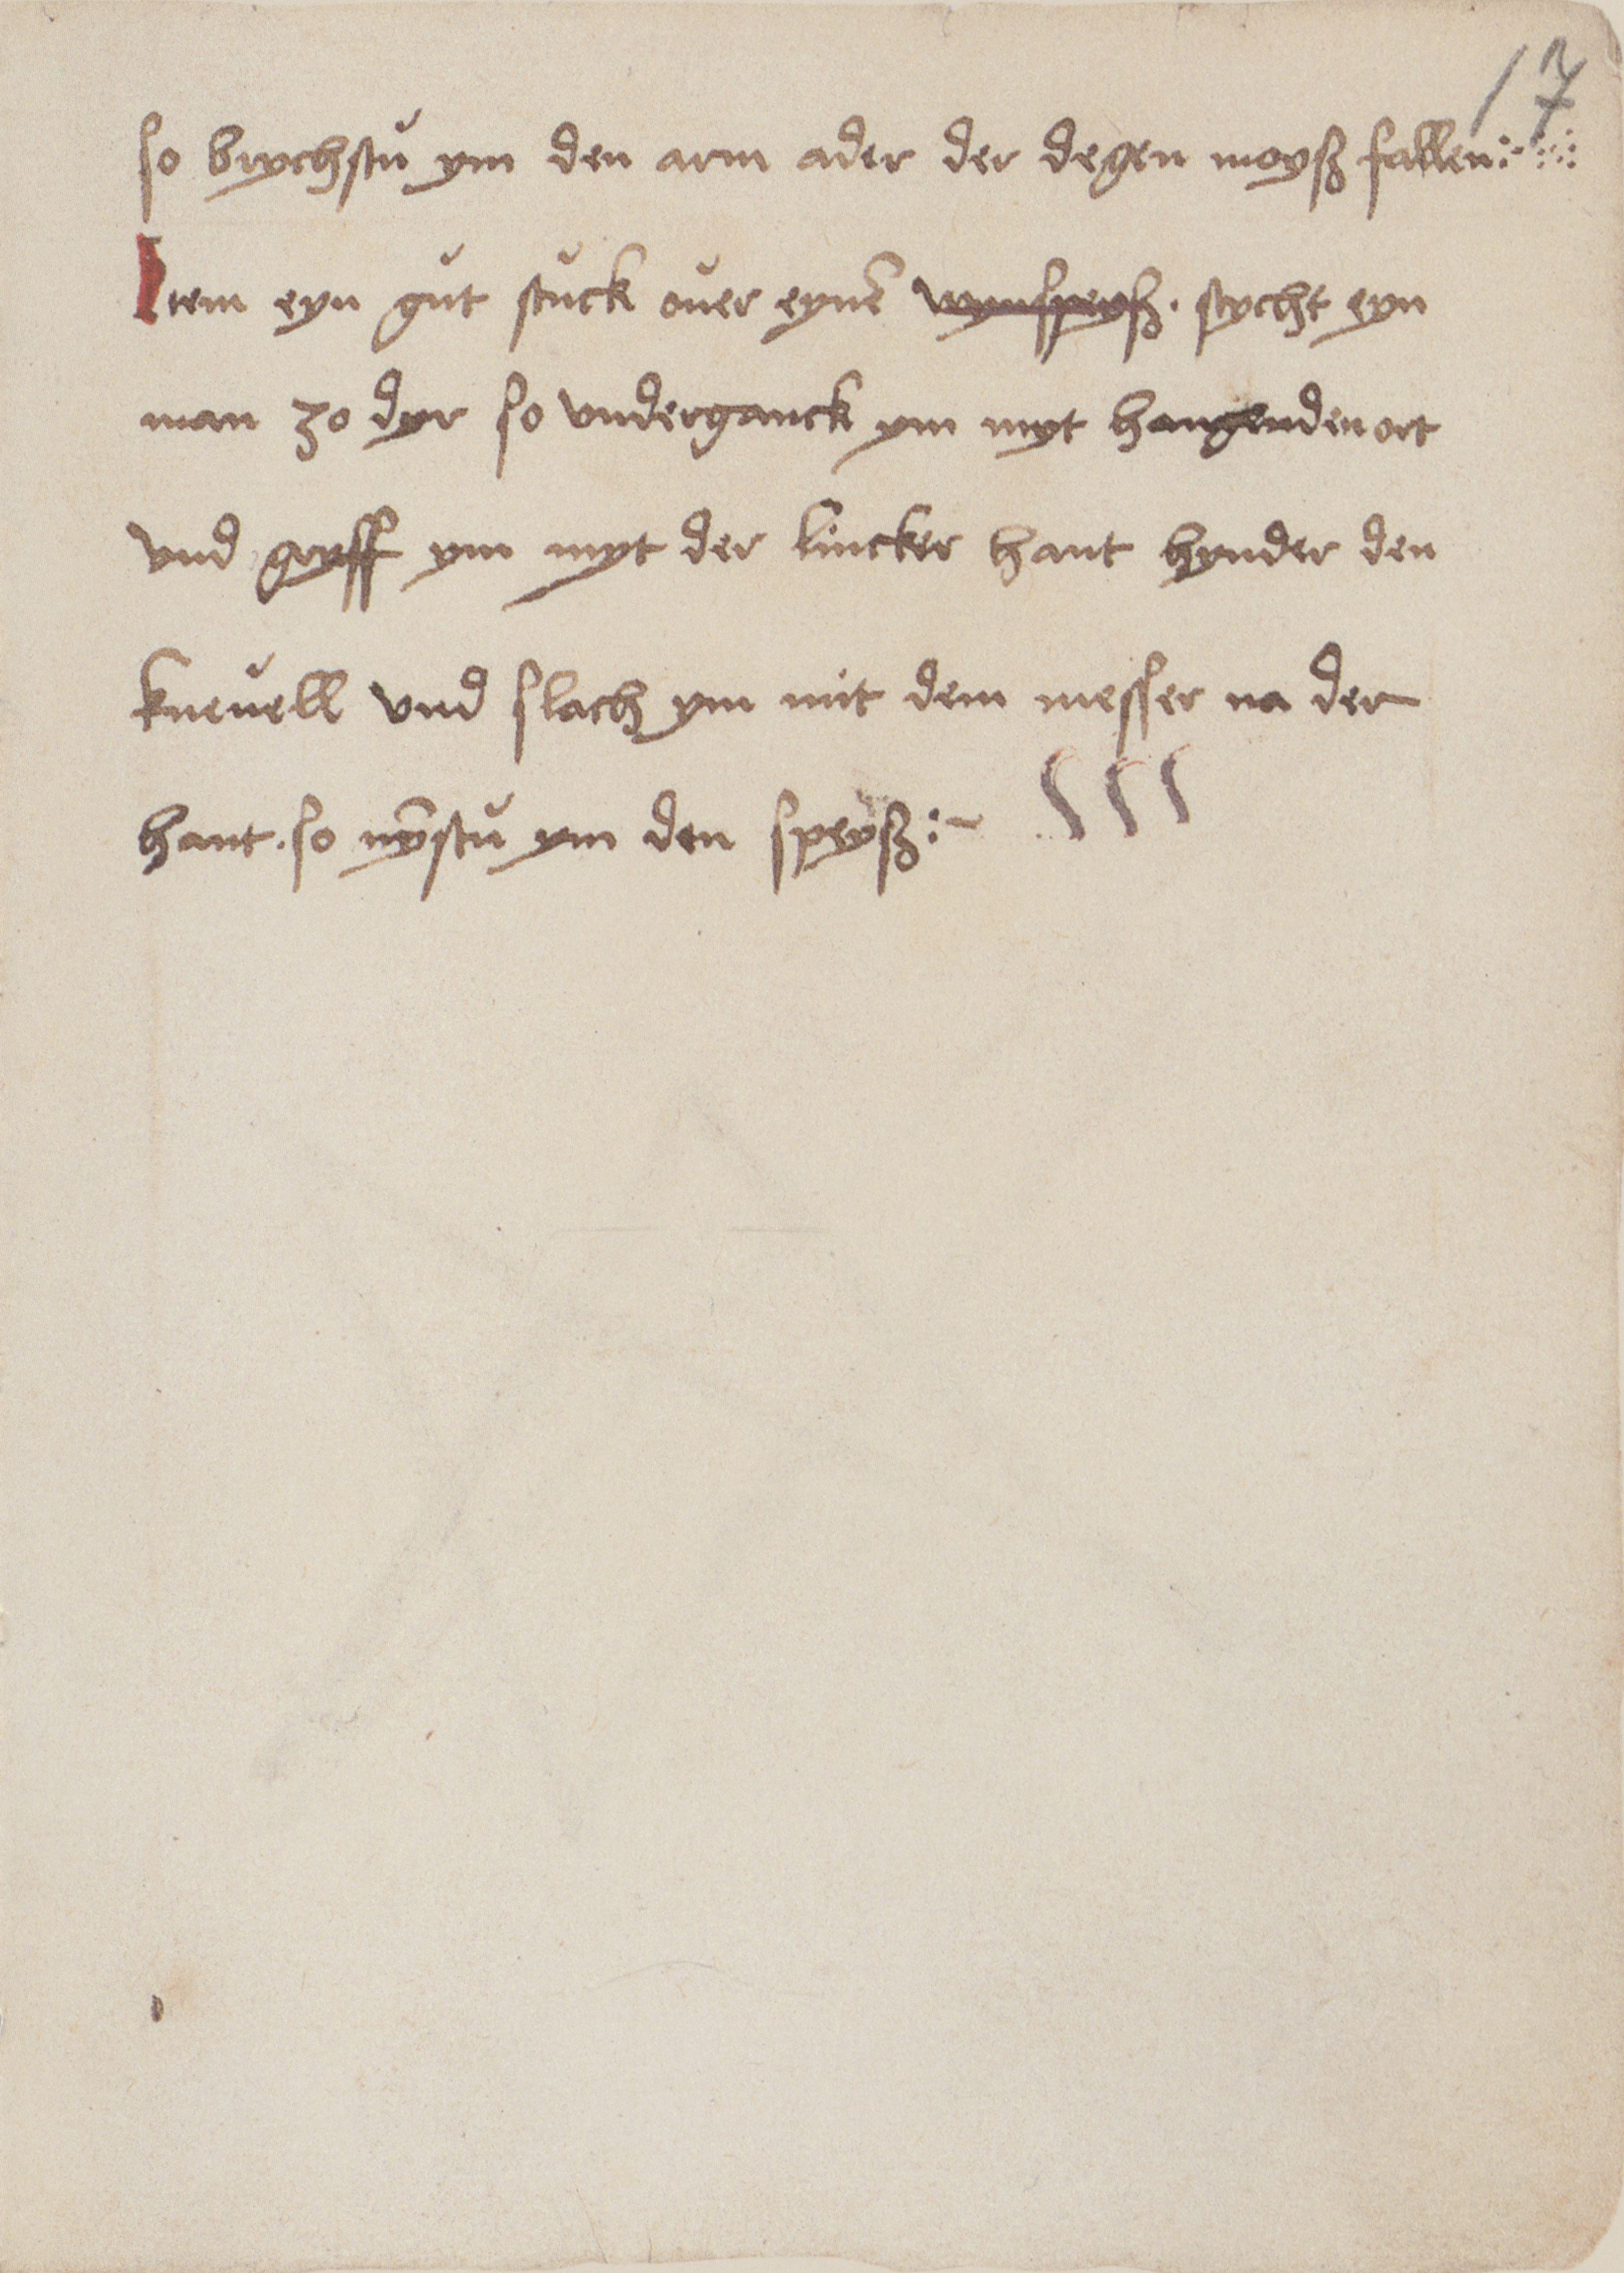 17
so brychstu ym den arm ader der degen moyß fallen :~ ⁘
Item eyn gut stuck ouer eynē wynspeyß . stycht eyn
man zo dyr so vnderganck ym myt hangenden ort
vnd gryff ym myt der lincker hant hynder den
kneuell vnd slach ym mit dem messer na der
hant . so nȳstu ym den speyß :~